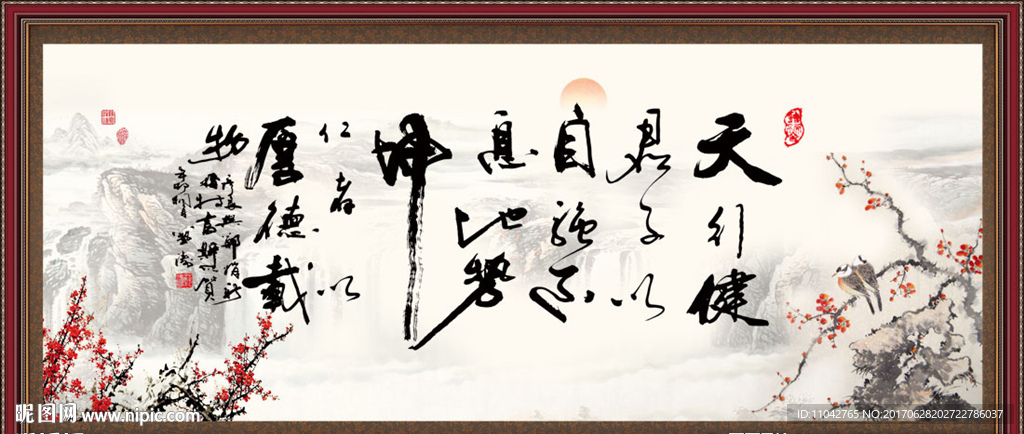 天行健
君子以
自強不
息地勢
坤
仁者以
厚德載
物
昵图网 www.nipic.com
ID:11042765 NO:20170628202722786037